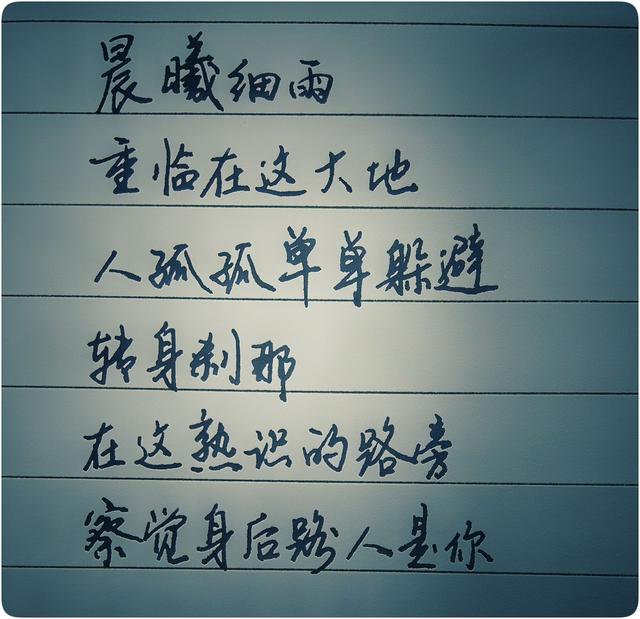 晨曦细雨
重临在这大地
人孤孤单单躲避
转身刹那
在这熟识的路旁
察觉身后路人是你